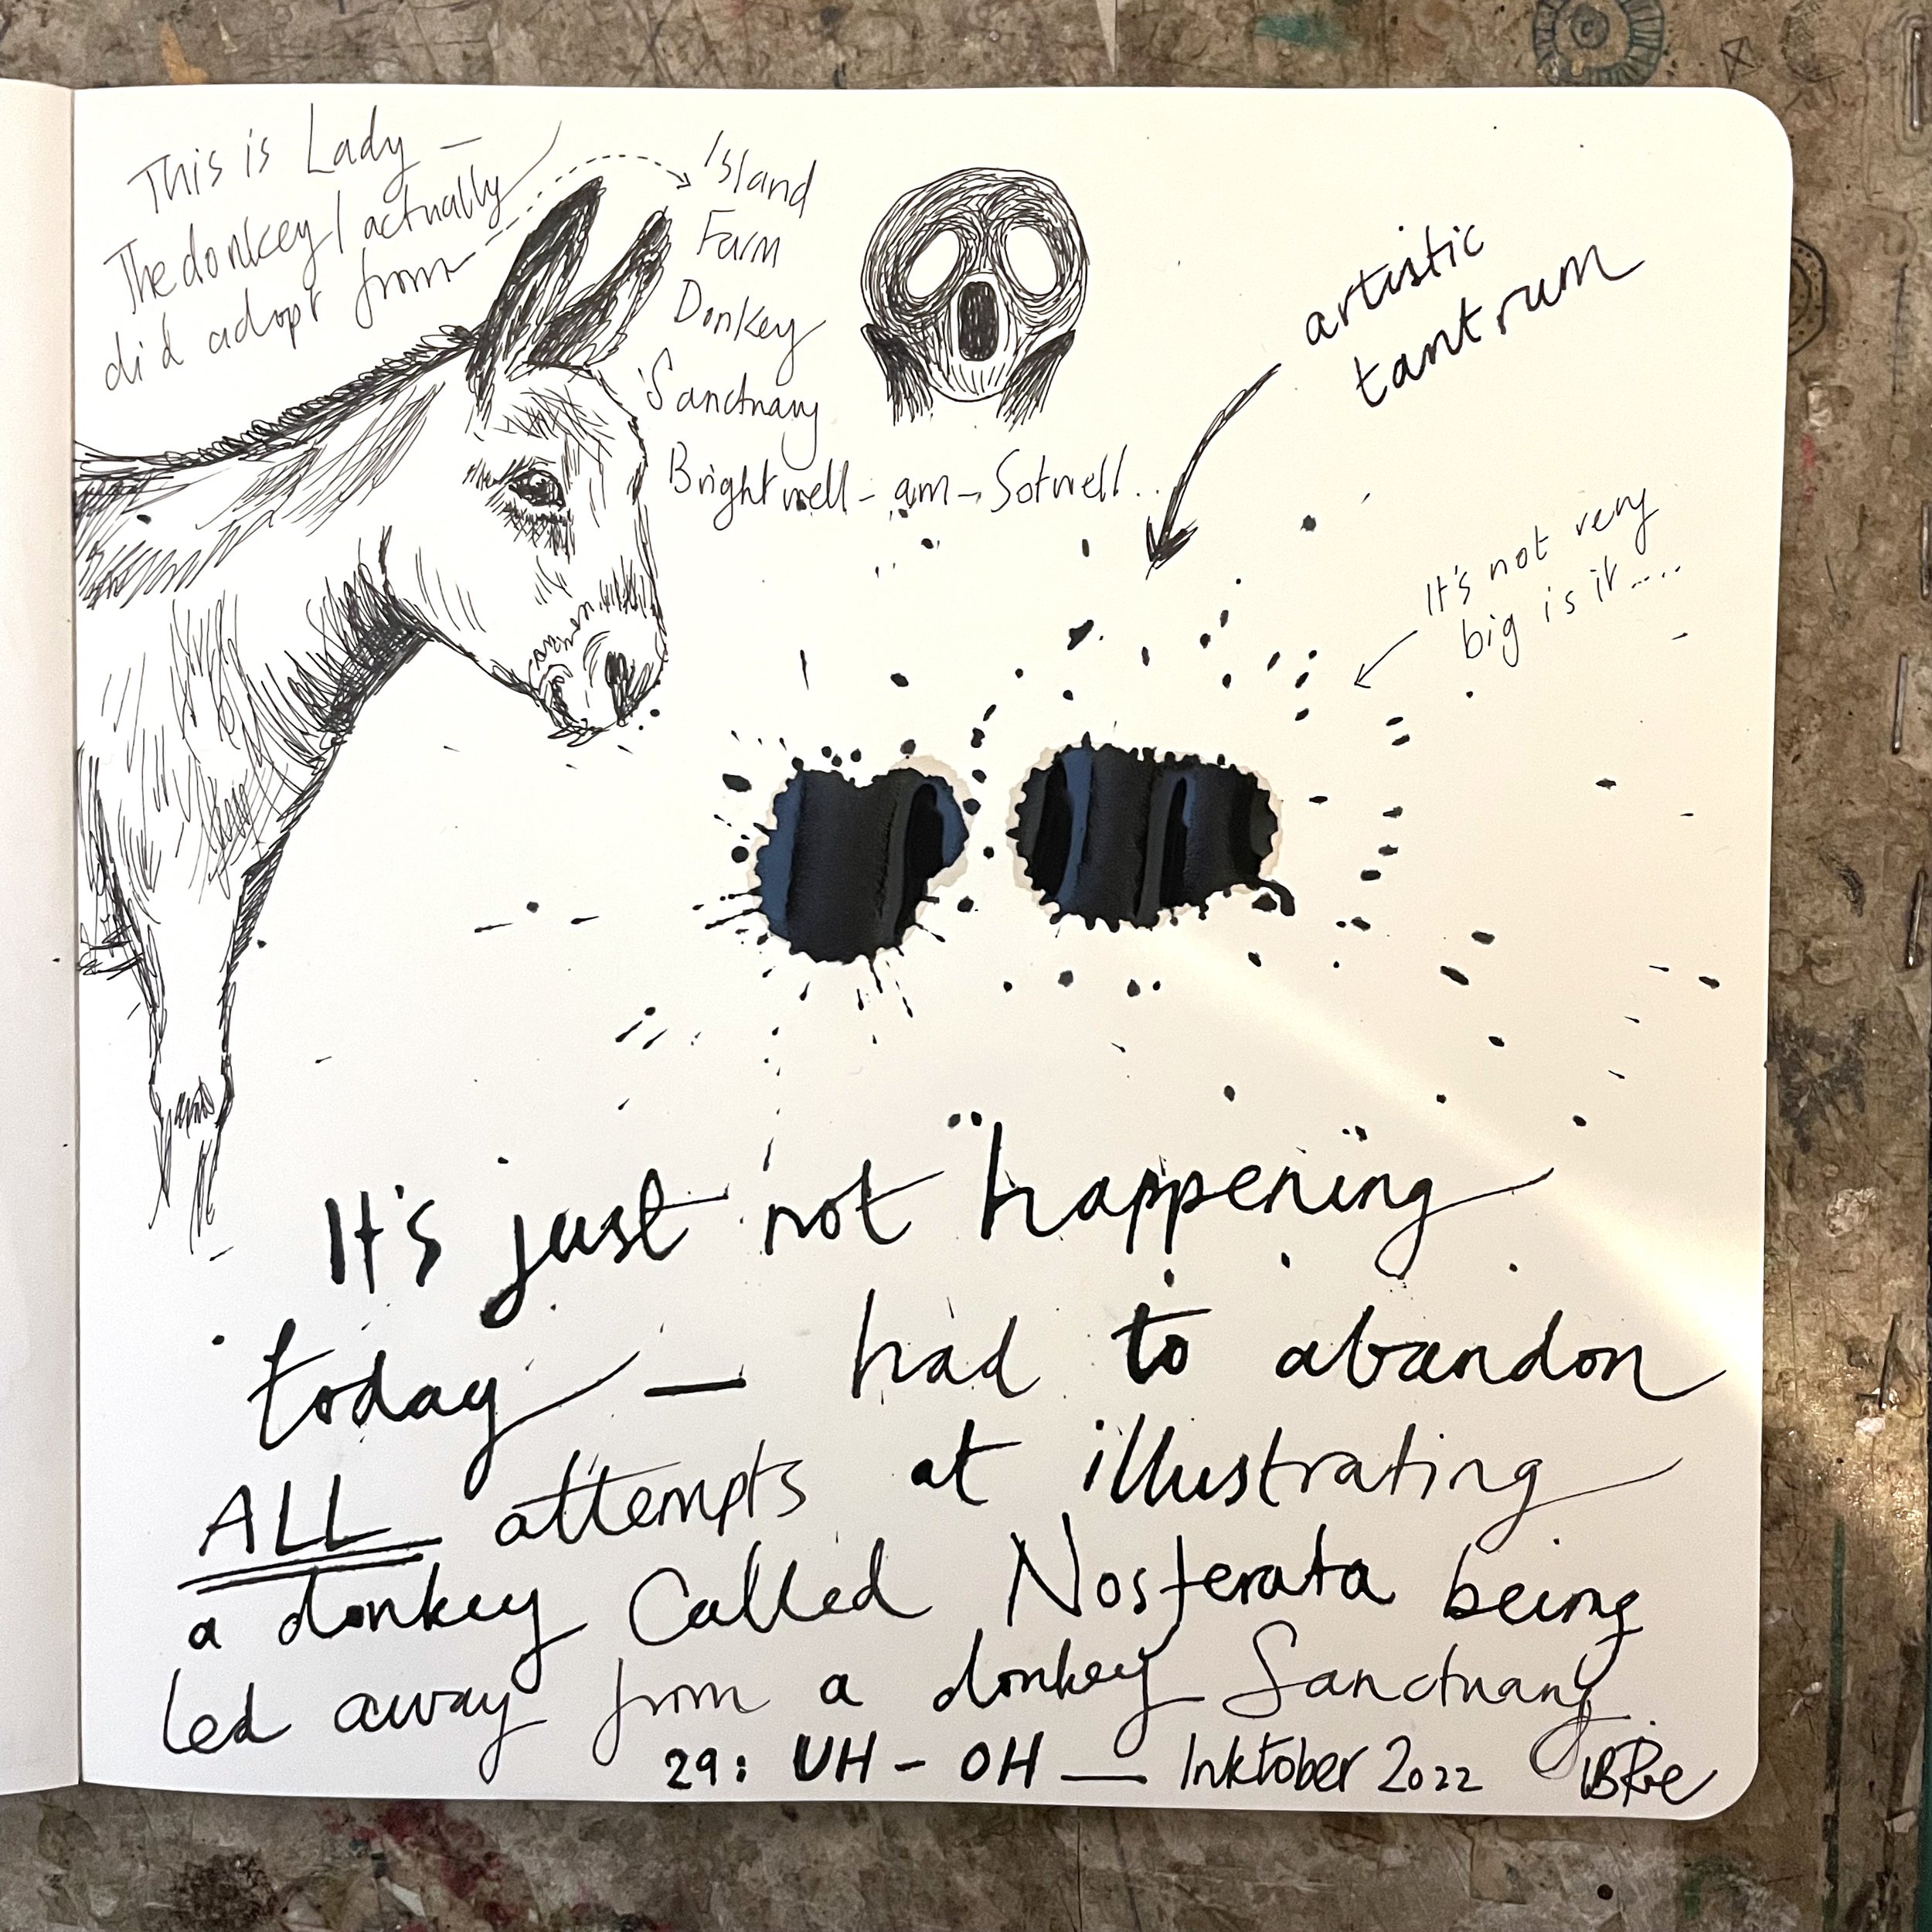 This is Lady –
The donkey I actually
did adopt from
Island
Farm
Donkey
Sanctuary
Brightwell-am-Sotwell..
artistic
tantrum
It's not very
big is it....
It's just not happening
today – had to abandon
ALL attempts at illustrating
a donkey called Nosferata being
led away from a donkey Sanctuary
29: UH-OH — Inktober 2022